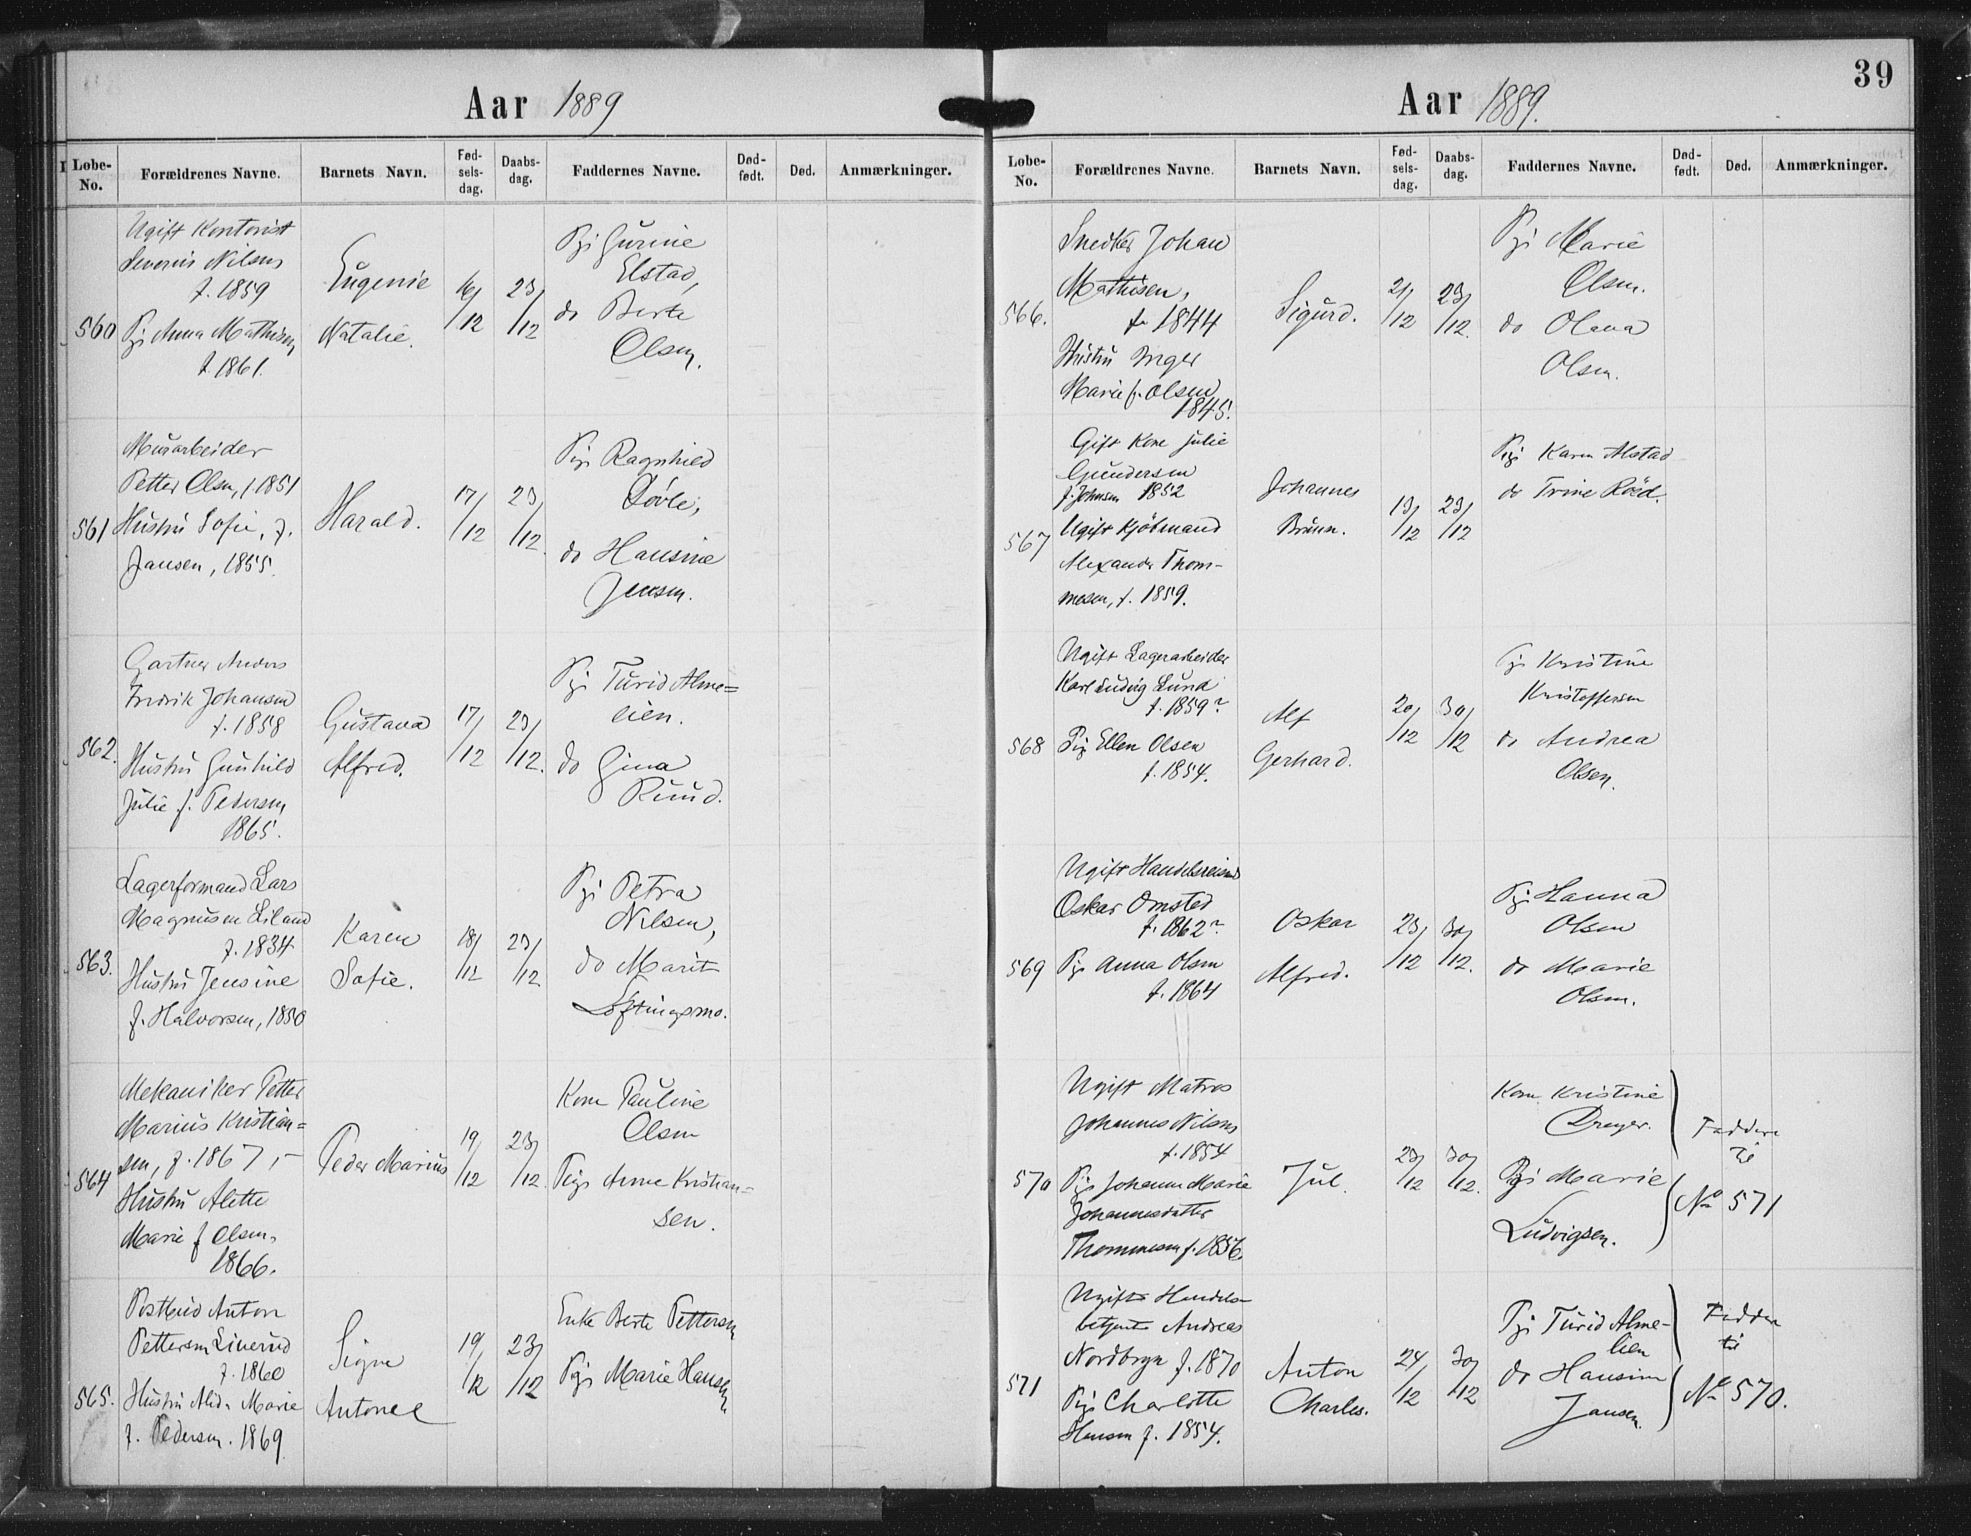 Aar 1889
Løbe-No. Forældrenes Navne. Barnets Navn. Fød-sels-dag. Daabs-dag. Faddernes Navne. Død-født. Død. Anmærkninger.
560
Ugift Kontorist
Severin Nilsen
f. 1859
Pige Anna Mathisen
f. 1861.
Eugenie
Natalie.
16/12
23/12
Pige Gurine
Elstad,
do Berte
Olsen.
561
Murarbeider
Petter Olsen, f 1851
Hustru Sofie, f.
Jansen, 1855.
Harald.
17/12
23/12.
Pige Ragnhild
Døvle,
do Hansine
Jensen.
562.
Gartner Anders
Fredrik Johansen
f. 1858
Hustru Gunhild
Julie f. Pedersen
1865.
Gustava
Alfred.
17/12
23/12.
Pige Turid Alme=
lien.
do Gina
Ruud.
563.
Lagerformand Lars
Magnusen Liland
f. 1834
Hustru Jensine
f. Halvorsen, 1850
Karen
Sofie.
18/12
23/12
Pige Petra
Nilsen,
do Marit
Løftingsmo.
564
Mekaniker Petter
Marius Kristian=
sen, f. 1867, -
Hustru Alette
Marie f Olsen,
1866.
Peder Marius
19/12
23/12.
Kone Pauline
Olsen
Pige Anne Kristian=
sen.
565.
Postbud Anton
Pettersen Linerud
f. 1860
Hustru Alida Marie
f. Pedersen. 1869
Signe
Antonee
19/12
23/12
Enke Berte Pettersen
Pige Marie Hansen
39
Aar 1889.
Løbe-No. Forældrenes Navne. Barnets Navn. Fød-sels-dag. Daabs-dag. Faddernes Navne. Død-født. Død. Anmærkninger.
566.
Snedker Johan
Mathisen,
f. 1844
Hustru Inger
Marie f. Olsen
1845.
Sigurd.
21/12
23/12.
Pige Marie
Olsen.
do Olava
Olsen.
567
Gift Kone Julie
Gundersen
f. Johnsen 1852
Ugift Kjøbmand
Alexander Thom-
mesen, f. 1859.
Johannes
Brunn.
13/12
23/12
Pige Karen Alstad
do Trine Röed.
568
Ugift Lagerarbeider
Karl Ludvig Lund
f. 1859?
Pige Ellen Olsen
f. 1854.
Alf
Gerhard.
20/12
30/12
Pige Kristine
Kristoffersen
do Andrea
Olsen.
569
Ugift Handelsreisende
Oskar Omsted
f. 1862?
Pige Anna Olsen
f. 1864
Oskar
Alfred.
23/12
30/12.
Pige Hanna
Olsen
do Marie
Olsen.
570
Ugift Matros
Johannes Nilsen
f. 1854
Pige Johanne Marie
Johannesdatter
Thommesen f. 1856.
Jul.
23/12
30/12.
Kone Kristine
Dreyer.
Pige Marie
Ludvigsen.
Faddere
til
No 571
571
Ugift Handels-
betjent Andreas
Nordbryn f. 1870
Pige Charlotte
Hansen f. 1854.
Anton
Charles.
24/12
30/12
Pige Turid Alme-
lien
do Hansine
Jansen.
Faddere
til
No 570.